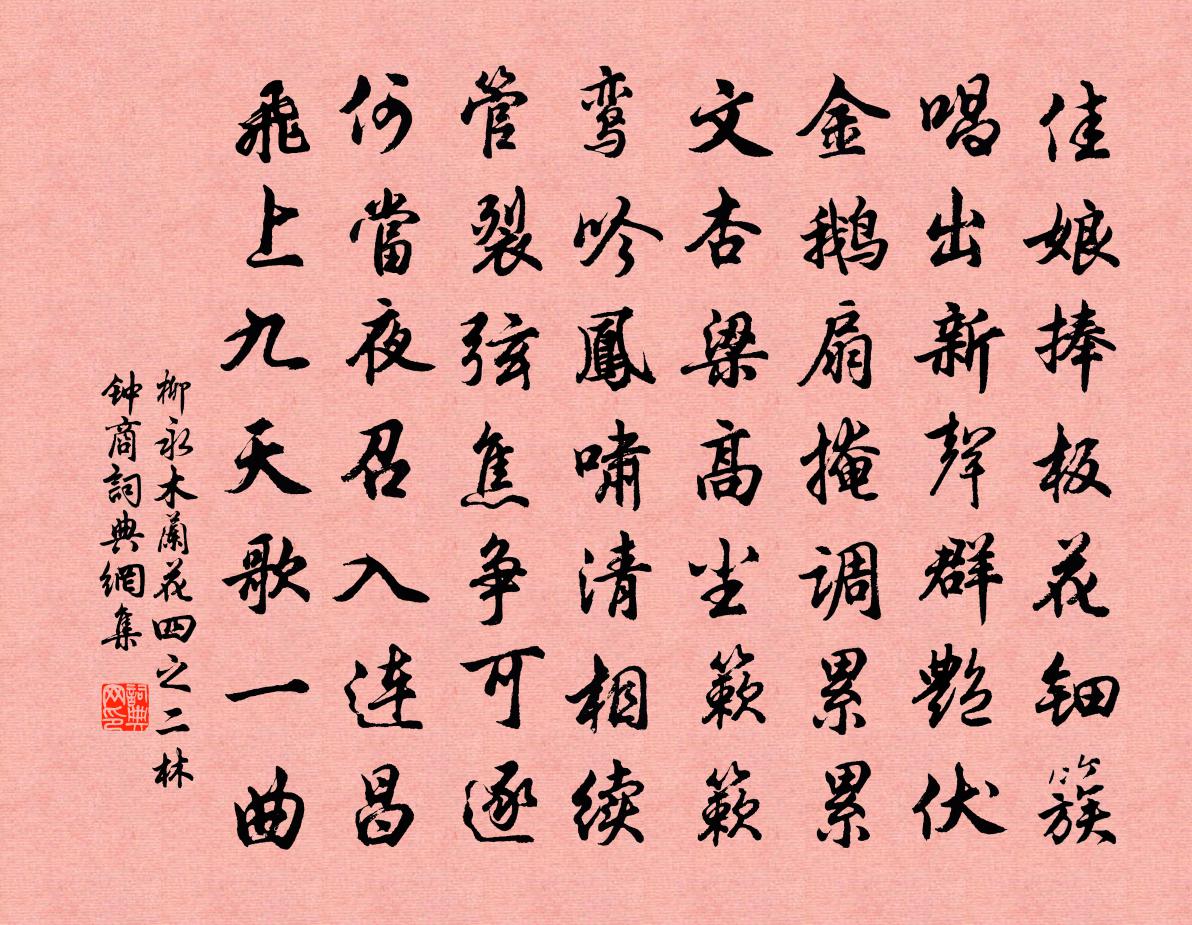 佳娘捧板花钿簇
唱出新聲群艷伏
金鹅扇掩調累累
文杏梁高尘簌簌
鸾吟鳳啸清相续
管裂弦焦争可逐
何當夜召入连昌
飛上九天歌一曲
柳永木蘭花四之二林
钟商詞典網集
詞典网印